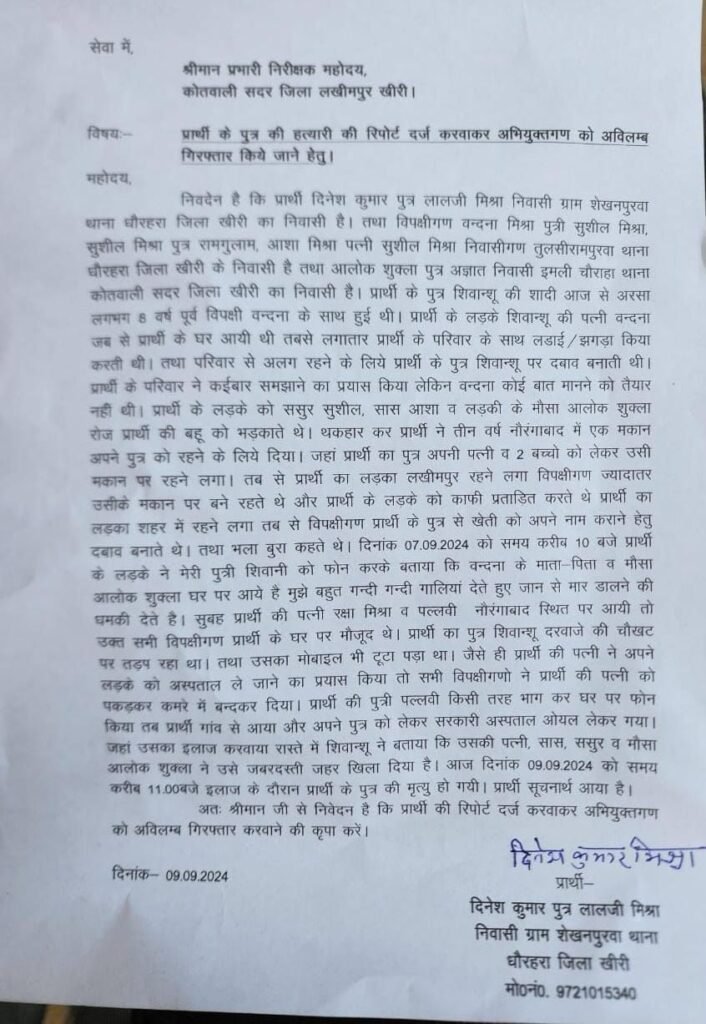 सेवा में,
श्रीमान प्रभारी निरीक्षक महोदय,
कोतवाली सदर जिला लखीमपुर खीरी।
विषयः– प्रार्थी के पुत्र की हत्यारी की रिपोर्ट दर्ज करवाकर अभियुक्तगण को अविलम्ब
गिरफ्तार किये जाने हेतु।
महोदय,
निवदेन है कि प्रार्थी दिनेश कुमार पुत्र लालजी मिश्रा निवासी ग्राम शेखनपुरवा
थाना धौरहरा जिला खीरी का निवासी है। तथा विपक्षीगण वन्दना मिश्रा पुत्री सुशील मिश्रा,
सुशील मिश्रा पुत्र रामगुलाम, आशा मिश्रा पत्नी सुशील मिश्रा निवासीगण तुलसीरामपुरवा थाना
धौरहरा जिला खीरी के निवासी है तथा आलोक शुक्ला पुत्र अज्ञात निवासी इमली चौराहा थाना
कोतवाली सदर जिला खीरी का निवासी है। प्रार्थी के पुत्र शिवान्शू की शादी आज से अरसा
लगभग 8 वर्ष पूर्व विपक्षी वन्दना के साथ हुई थी। प्रार्थी के लड़के शिवान्शू की पत्नी वन्दना
जब से प्रार्थी के घर आयी थी तबसे लगातार प्रार्थी के परिवार के साथ लडाई/झगड़ा किया
करती थी। तथा परिवार से अलग रहने के लिये प्रार्थी के पुत्र शिवान्शू पर दबाव बनाती थी।
प्रार्थी के परिवार ने कईबार समझाने का प्रयास किया लेकिन वन्दना कोई बात मानने को तैयार
नही थी। प्रार्थी के लड़के को ससुर सुशील, सास आशा व लड़की के मौसा आलोक शुक्ला
रोज प्रार्थी की बहू को भड़काते थे। थकहार कर प्रार्थी ने तीन वर्ष नौरंगाबाद में एक मकान
अपने पुत्र को रहने के लिये दिया। जहां प्रार्थी का पुत्र अपनी पत्नी व 2 बच्चो को लेकर उसी
मकान पर रहने लगा। तब से प्रार्थी का लड़का लखीमपुर रहने लगा विपक्षीगण ज्यादातर
उसीके मकान पर बने रहते थे और प्रार्थी के लडके को काफी प्रताड़ित करते थे प्रार्थी का
लड़का शहर में रहने लगा तब से विपक्षीगण प्रार्थी के पुत्र से खेती को अपने नाम कराने हेतु
दबाव बनाते थे। तथा भला बुरा कहते थे। दिनांक 07.09.2024 को समय करीब 10 बजे प्रार्थी
के लड़के ने मेरी पुत्री शिवानी को फोन करके बताया कि वन्दना के माता–पिता व मौसा
आलोक शुक्ला घर पर आये है मुझे बहुत गन्दी गन्दी गालियां देते हुए जान से मार डालने की
धमकी देते है। सुबह प्रार्थी की पत्नी रक्षा मिश्रा व पल्लवी नौरंगाबाद स्थित पर आयी तो
उक्त सभी विपक्षीगण प्रार्थी के घर पर मौजूद थे। प्रार्थी का पुत्र शिवान्शू दरवाजे की चौखट
पर तड़प रहा था। तथा उसका मोबाइल भी टूटा पड़ा था। जैसे ही प्रार्थी की पत्नी ने अपने
लड़के को अस्पताल ले जाने का प्रयास किया तो सभी विपक्षीगणो ने प्रार्थी की पत्नी को
पकड़कर कमरे में बन्दकर दिया। प्रार्थी की पुत्री पल्लवी किसी तरह भाग कर घर पर फोन
किया तब प्रार्थी गांव से आया और अपने पुत्र को लेकर सरकारी अस्पताल ओयल लेकर गया।
जहां उसका इलाज करवाया रास्ते में शिवान्शू ने बताया कि उसकी पत्नी, सास, ससुर व मौसा
आलोक शुक्ला ने उसे जबरदस्ती जहर खिला दिया है। आज दिनांक 09.09.2024 को समय
करीब 11.00बजे इलाज के दौरान प्रार्थी के पुत्र की मृत्यु हो गयी। प्रार्थी सूचनार्थ आया है।
अतः श्रीमान जी से निवेदन है कि प्रार्थी की रिपोर्ट दर्ज करवाकर अभियुक्तगण
को अविलम्ब गिरफ्तार करवाने की कृपा करें।
दिनेश कुमार मिश्रा
दिनांक– 09.09.2024
प्रार्थी–
दिनेश कुमार पुत्र लालजी मिश्रा
निवासी ग्राम शेखनपुरवा थाना
धौरहरा जिला खीरी
मो0नं0. 9721015340